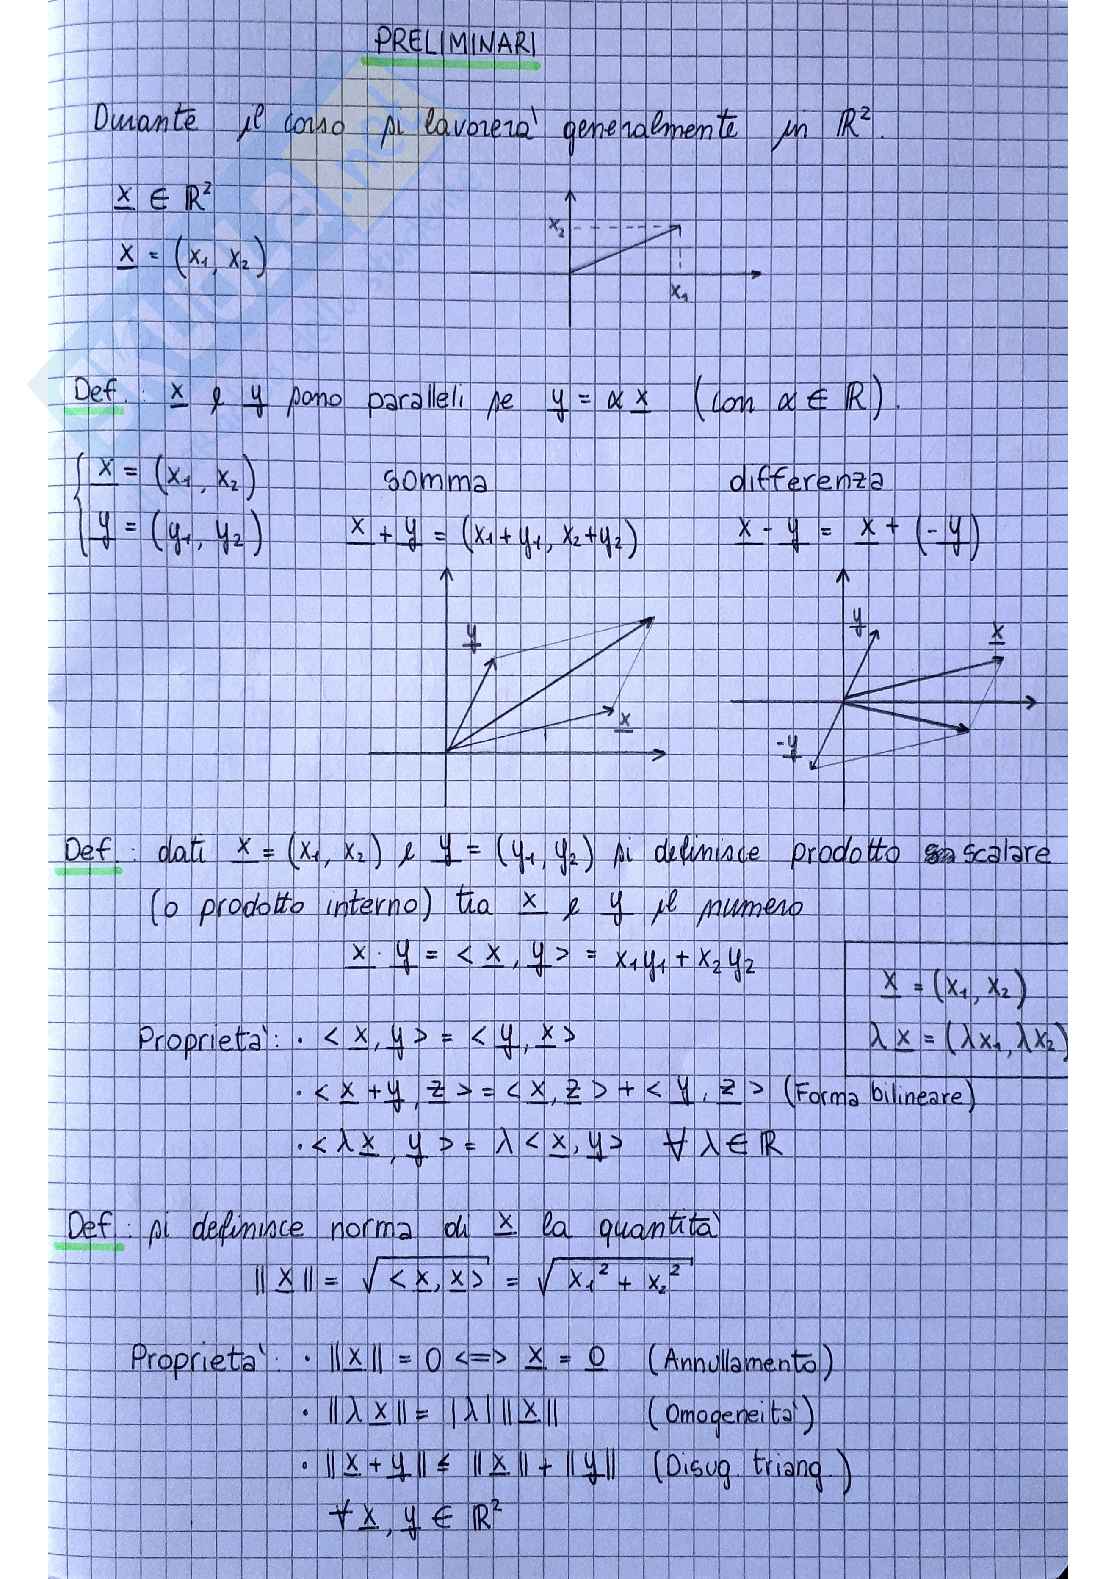 PRELIMINARI
Durante il corso si lavorerà generalmente in ℝ².
x̲ ∈ ℝ²
x̲ = (x₁, x₂)
x₂
x₁
Def.: x̲ e y̲ sono paralleli se y̲ = α x̲ (con α ∈ ℝ).
{ x̲ = (x₁, x₂)
y̲ = (y₁, y₂)
somma
x̲ + y̲ = (x₁+y₁, x₂+y₂)
differenza
x̲ - y̲ = x̲ + (-y̲)
y̲
x̲
y̲
x̲
-y̲
Def: dati x̲ = (x₁, x₂) e y̲ = (y₁, y₂) si definisce prodotto scalare
(o prodotto interno) tra x̲ e y̲ il numero
x̲ · y̲ = < x̲, y̲ > = x₁y₁ + x₂y₂
x̲ = (x₁, x₂)
λ x̲ = (λx₁, λx₂)
Proprietà: · < x̲, y̲ > = < y̲, x̲ >
· < x̲ + y̲, z̲ > = < x̲, z̲ > + < y̲, z̲ > (Forma bilineare)
· < λ x̲, y̲ > = λ < x̲, y̲ > ∀ λ ∈ ℝ
Def: si definisce norma di x̲ la quantità
|| x̲ || = √< x̲, x̲ > = √x₁² + x₂²
Proprietà: · || x̲ || = 0 <=> x̲ = 0̲ (Annullamento)
· || λ x̲ || = |λ| || x̲ || (Omogeneità)
· || x̲ + y̲ || ≤ || x̲ || + || y̲ || (Disug. triang.)
∀ x̲, y̲ ∈ ℝ²